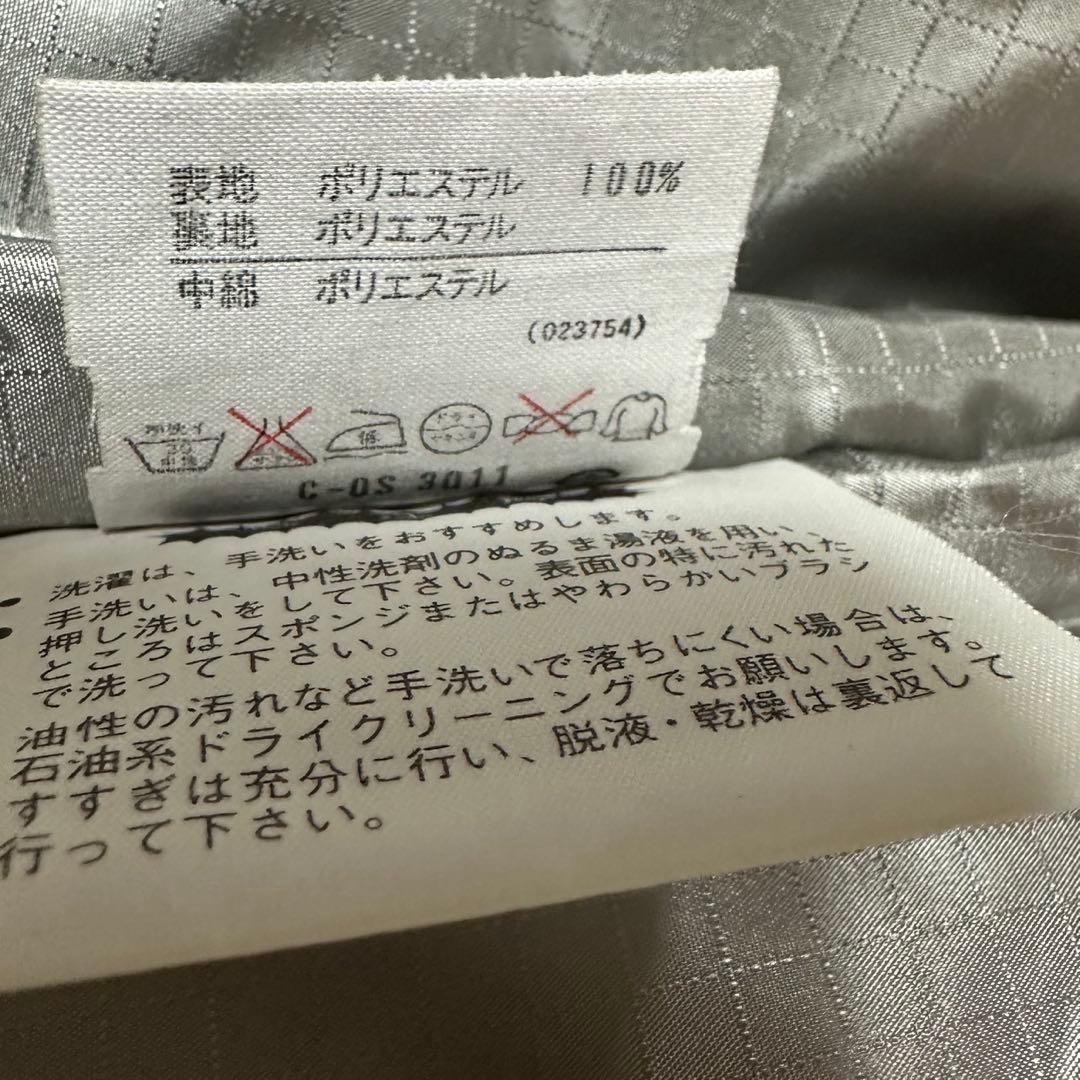 表地 ポリエステル 100%
裏地 ポリエステル
中綿 ポリエステル
(023754)
手洗イ
30
中性
低
ドライ
C-OS 3011
洗濯は、手洗いをおすすめします。
手洗いは、中性洗剤のぬるま湯液を用い、
押し洗いをして下さい。表面の特に汚れた
ところはスポンジまたはやわらかいブラシ
で洗って下さい。
油性の汚れなど手洗いで落ちにくい場合は、
石油系ドライクリーニングでお願いします。
すすぎは充分に行い、脱液・乾燥は裏返して
行って下さい。